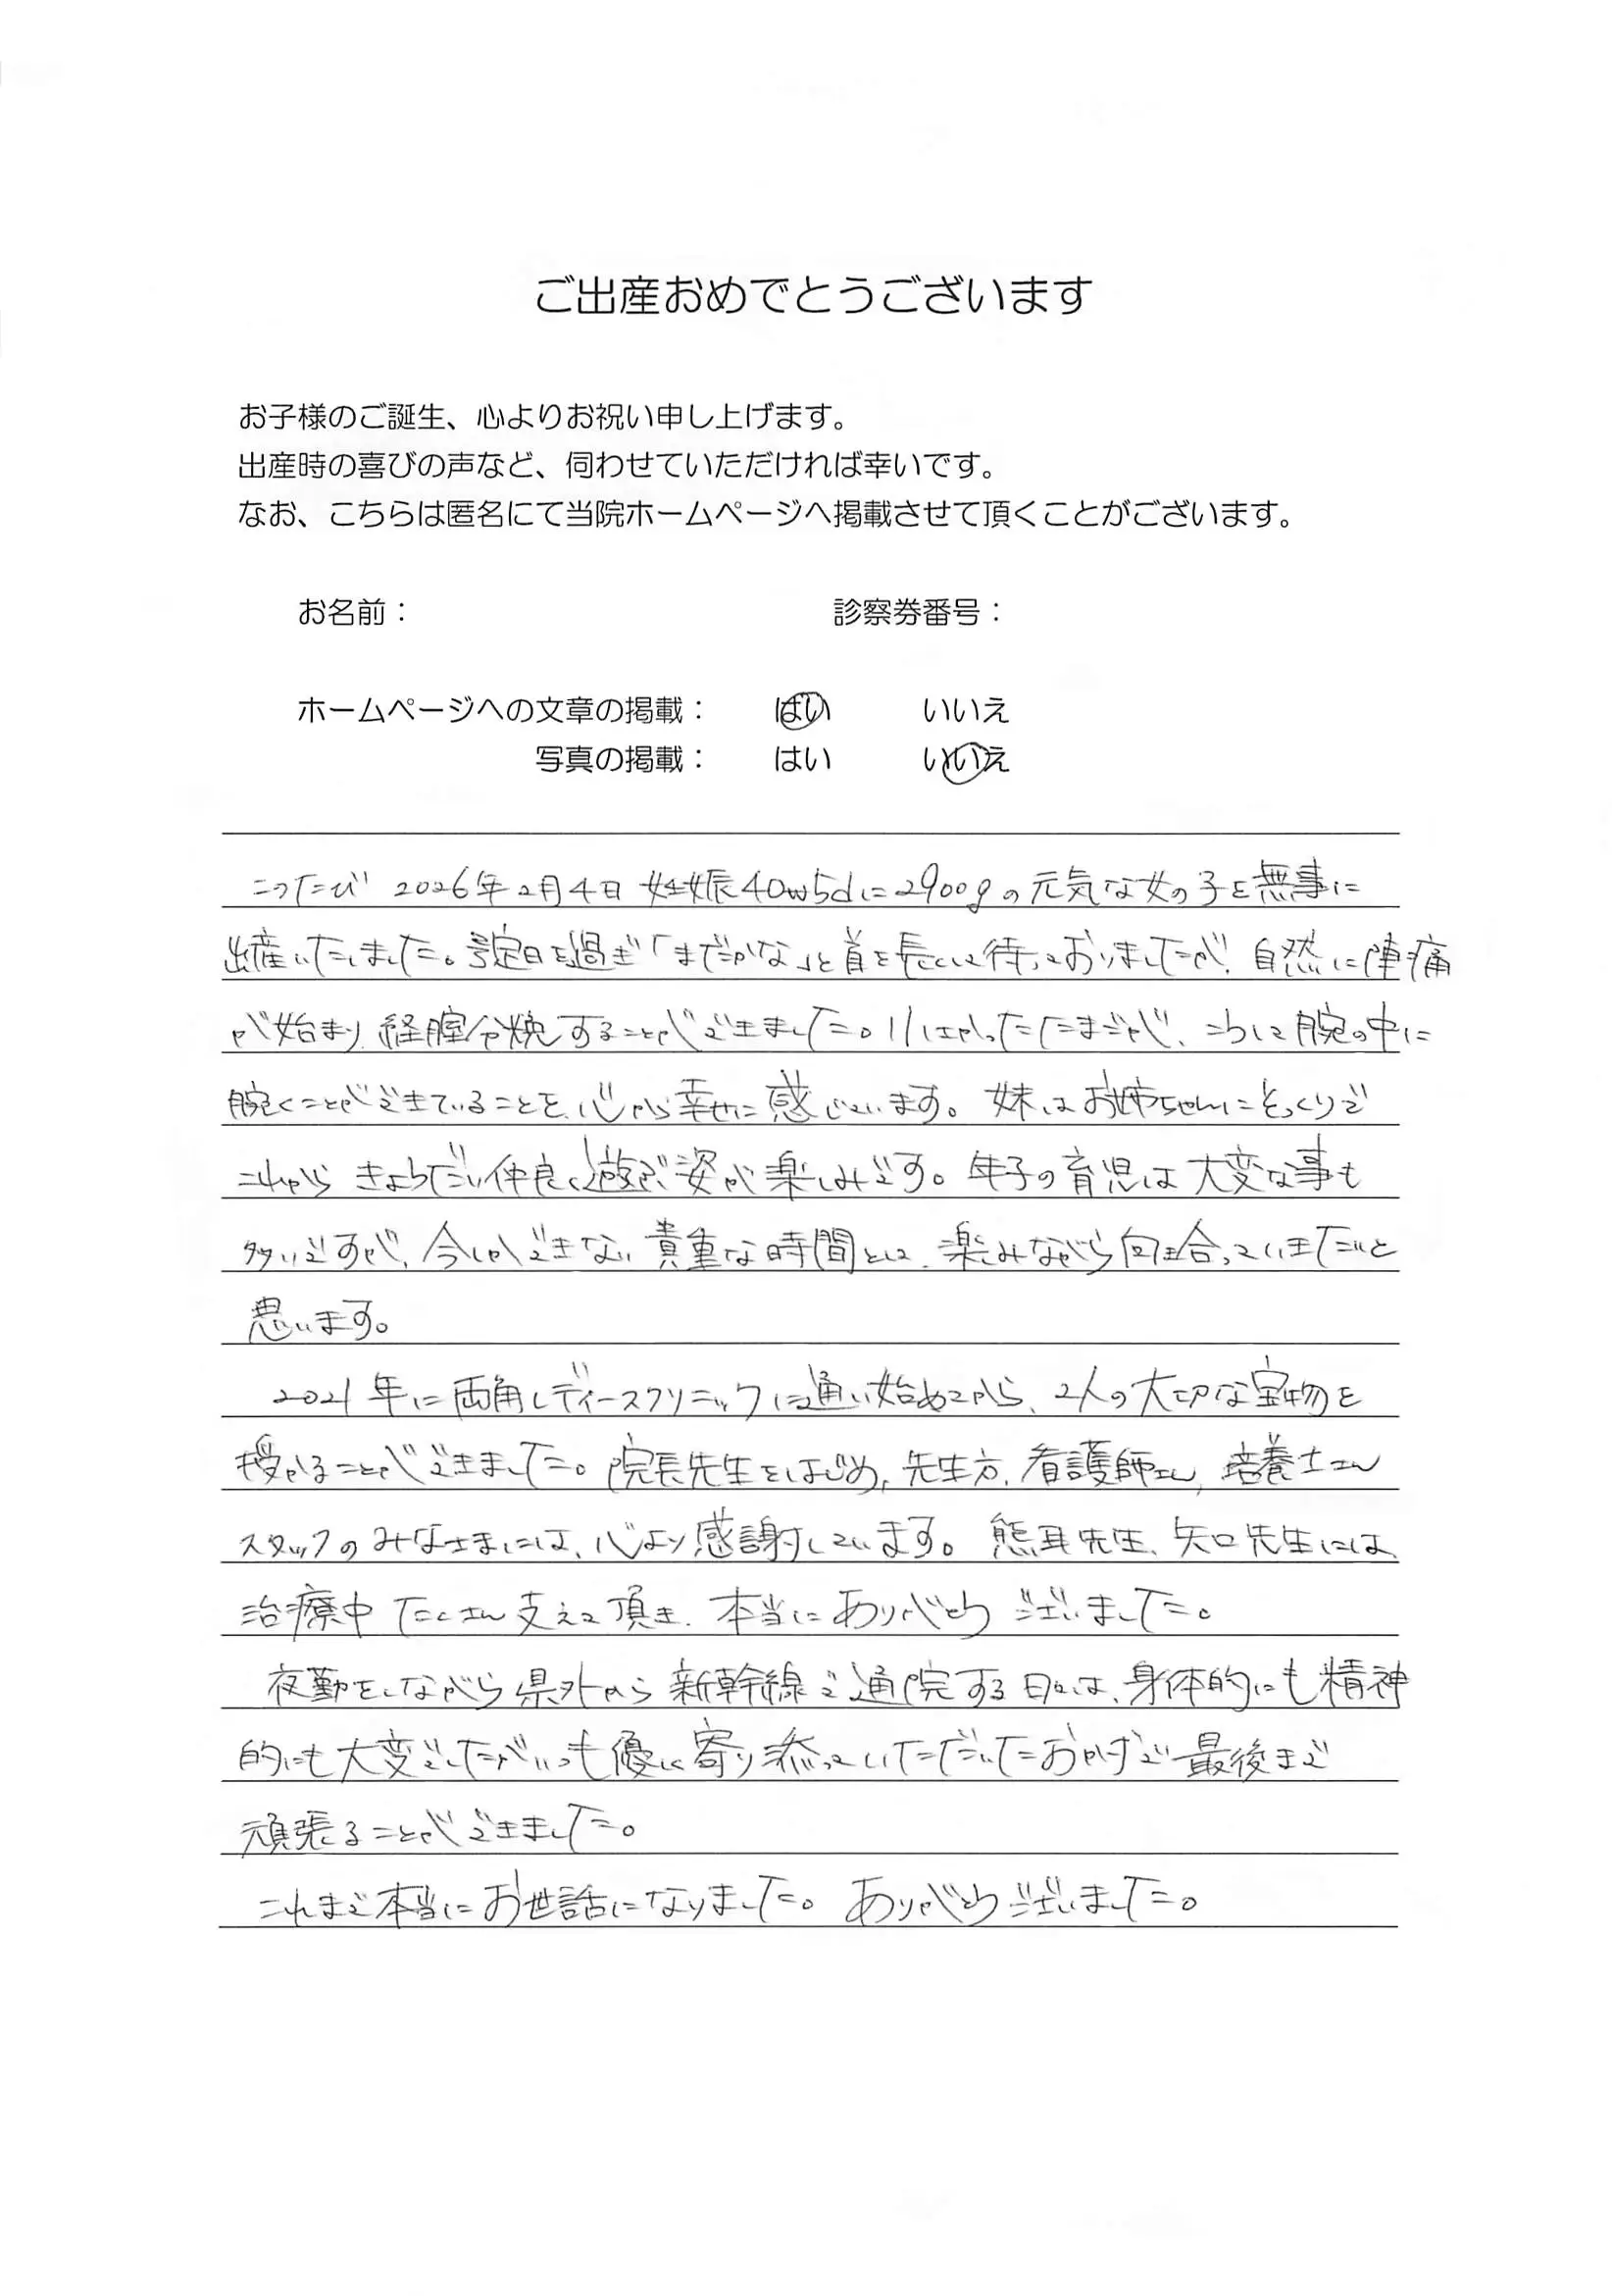 ご出産おめでとうございます
お子様のご誕生、心よりお祝い申し上げます。
出産時の喜びの声など、伺わせていただければ幸いです。
なお、こちらは匿名にて当院ホームページへ掲載させて頂くことがございます。
お名前： 診察券番号：
ホームページへの文章の掲載： はい いいえ
写真の掲載： はい いいえ
このたび 2026年2月4日 妊娠40w5dに2900gの元気な女の子を無事に
出産いたしました。予定日を過ぎ「まだかな」と首を長くして待っておりましたが、自然に陣痛
が始まり、経腟分娩することができました。小さかったたまごが、こうして腕の中に
抱くことができていることを、心から幸せに感じています。妹はお姉ちゃんにそっくりで
これから きょうだい仲良く遊ぶ姿が楽しみです。年子の育児は大変な事も
多いですが、今しかできない貴重な時間として、楽しみながら向き合っていきたいと
思います。
2021年に両角レディースクリニックに通い始めてから、2人の大切な宝物を
授かることができました。院長先生をはじめ、先生方、看護師さん、培養士さん
スタッフのみなさまには、心より感謝しています。熊耳先生、矢口先生には、
治療中たくさん支えて頂き、本当にありがとうございました。
夜勤をしながら県外から新幹線で通院する日々は、身体的にも精神
的にも大変でしたがいつも優しく寄り添っていただいたおかげで最後まで
頑張ることができました。
これまで本当にお世話になりました。ありがとうございました。